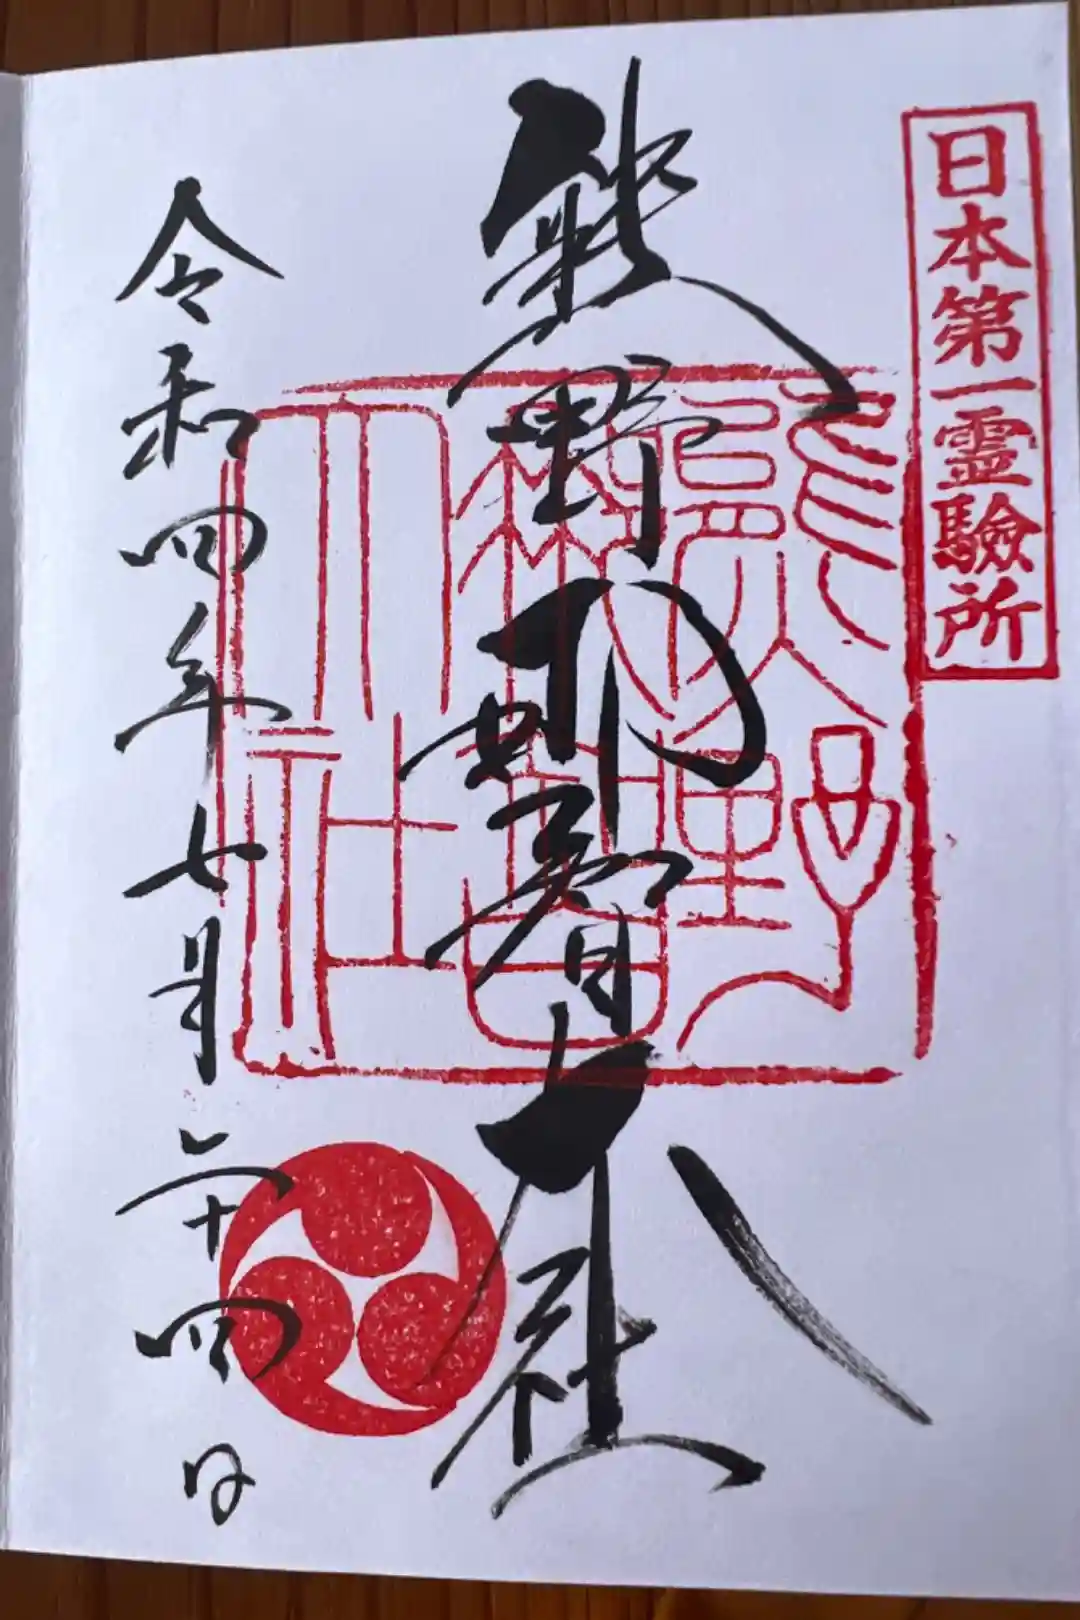 日本第一霊験所
熊野那智大社
熊野那智大社
令和四年七月二十四日